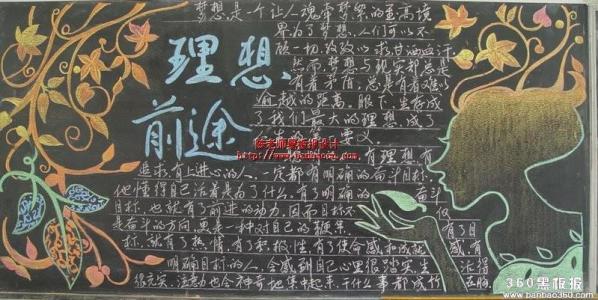 理想、
前途
梦想是一个让人魂牵梦萦的至高境
界为了梦想,人们可以不
顾一切孜孜以求甘洒血汗。
然而梦想与现实却总是
有着矛盾,总是有着难以
逾越的距离,眼下,生存成
了我们最大的理想,成了
有理想有
追求,有上进心的人,一定都有明确的奋斗目标,
他懂得自己活着是为了什么,有了明确的 奋斗
目标,也就有了前进的动力,因而目标不 仅
是奋斗的方向,更是一种对自己的鞭策 有了目
标,就有了热情,有了积极性,有了使命感和成就 感,有
明确目标的人,会感到自己心里很踏实,生 活得
很充实,注意力也会神奇地集中起来,干什么 事都成竹 在胸
陈老师黑板报设计
360黑板报
www.banbao360.com